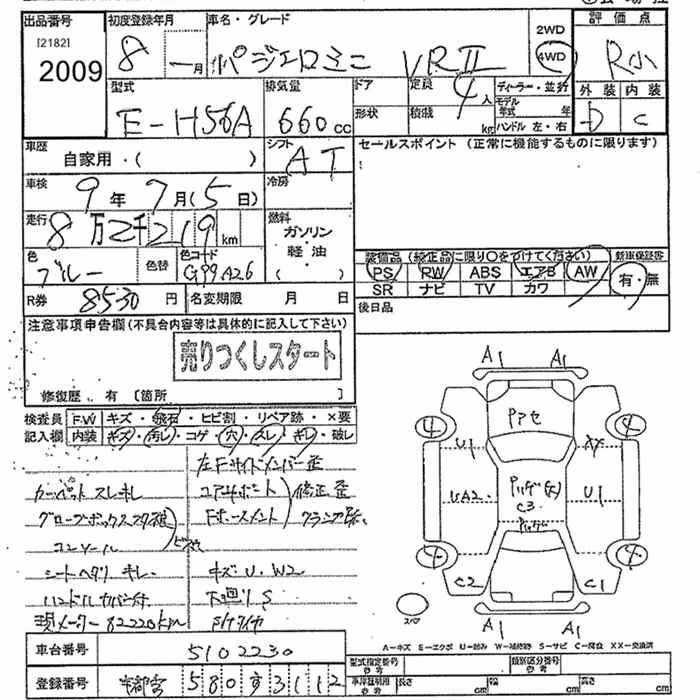 出品番号 初度登録年月 車名・グレード 評価点
[2182] 2009 8 一月 パジェロミニ VRⅡ 2WD 4WD R小
型式 排気量 ドア 定員 ディーラー・並行 外装 内装
E-H56A 660cc 4人 モデル年式 年 D C
形状 積載 kg ハンドル 左・右
車歴 シフト セールスポイント (正常に機能するものに限ります)
自家用・( ) AT
車検 冷房
9年 7月(5日)
走行 燃料
8万2千219km ガソリン・軽油・( )
色 色替 色コード 装備品 (純正品に限り○をつけてください) 新車保証書
ブルー G99A26 PS RW ABS エアB AW 有・無
SR ナビ TV カワ
R券 8530円 名変期限 月 日 後日品
注意事項申告欄(不具合内容等は具体的に記入して下さい)
売りつくしスタート
修復歴 有 〔箇所 〕
検査員 FW キズ・飛石・ヒビ割・リペア跡・×要
記入欄 内装 キズ・汚レ・コゲ・穴・スレ・キレ・破レ
左Fサイドメンバー歪
カーペット スレ キレ コアサポート 修正歪
グローブボックス Fホースメント
コンソール
シートヘタリ キレ キズ U・W2
ハンドルカバー付 下廻りS
現メーター 82220km
A1 A1
アA セ
4 4
U1
UA2 C3 U1
4 4
C2 C1
スペア A1 A1
A-キズ E-エクボ U-凹み W-補修跡 S-サビ C-腐食 XX-交換済
車台番号 5102230 型式指定番号 参考 類別区分番号 参考
登録番号 宇都宮 580 3112 車庫証明用 参考 長さ cm 幅 cm 高さ cm